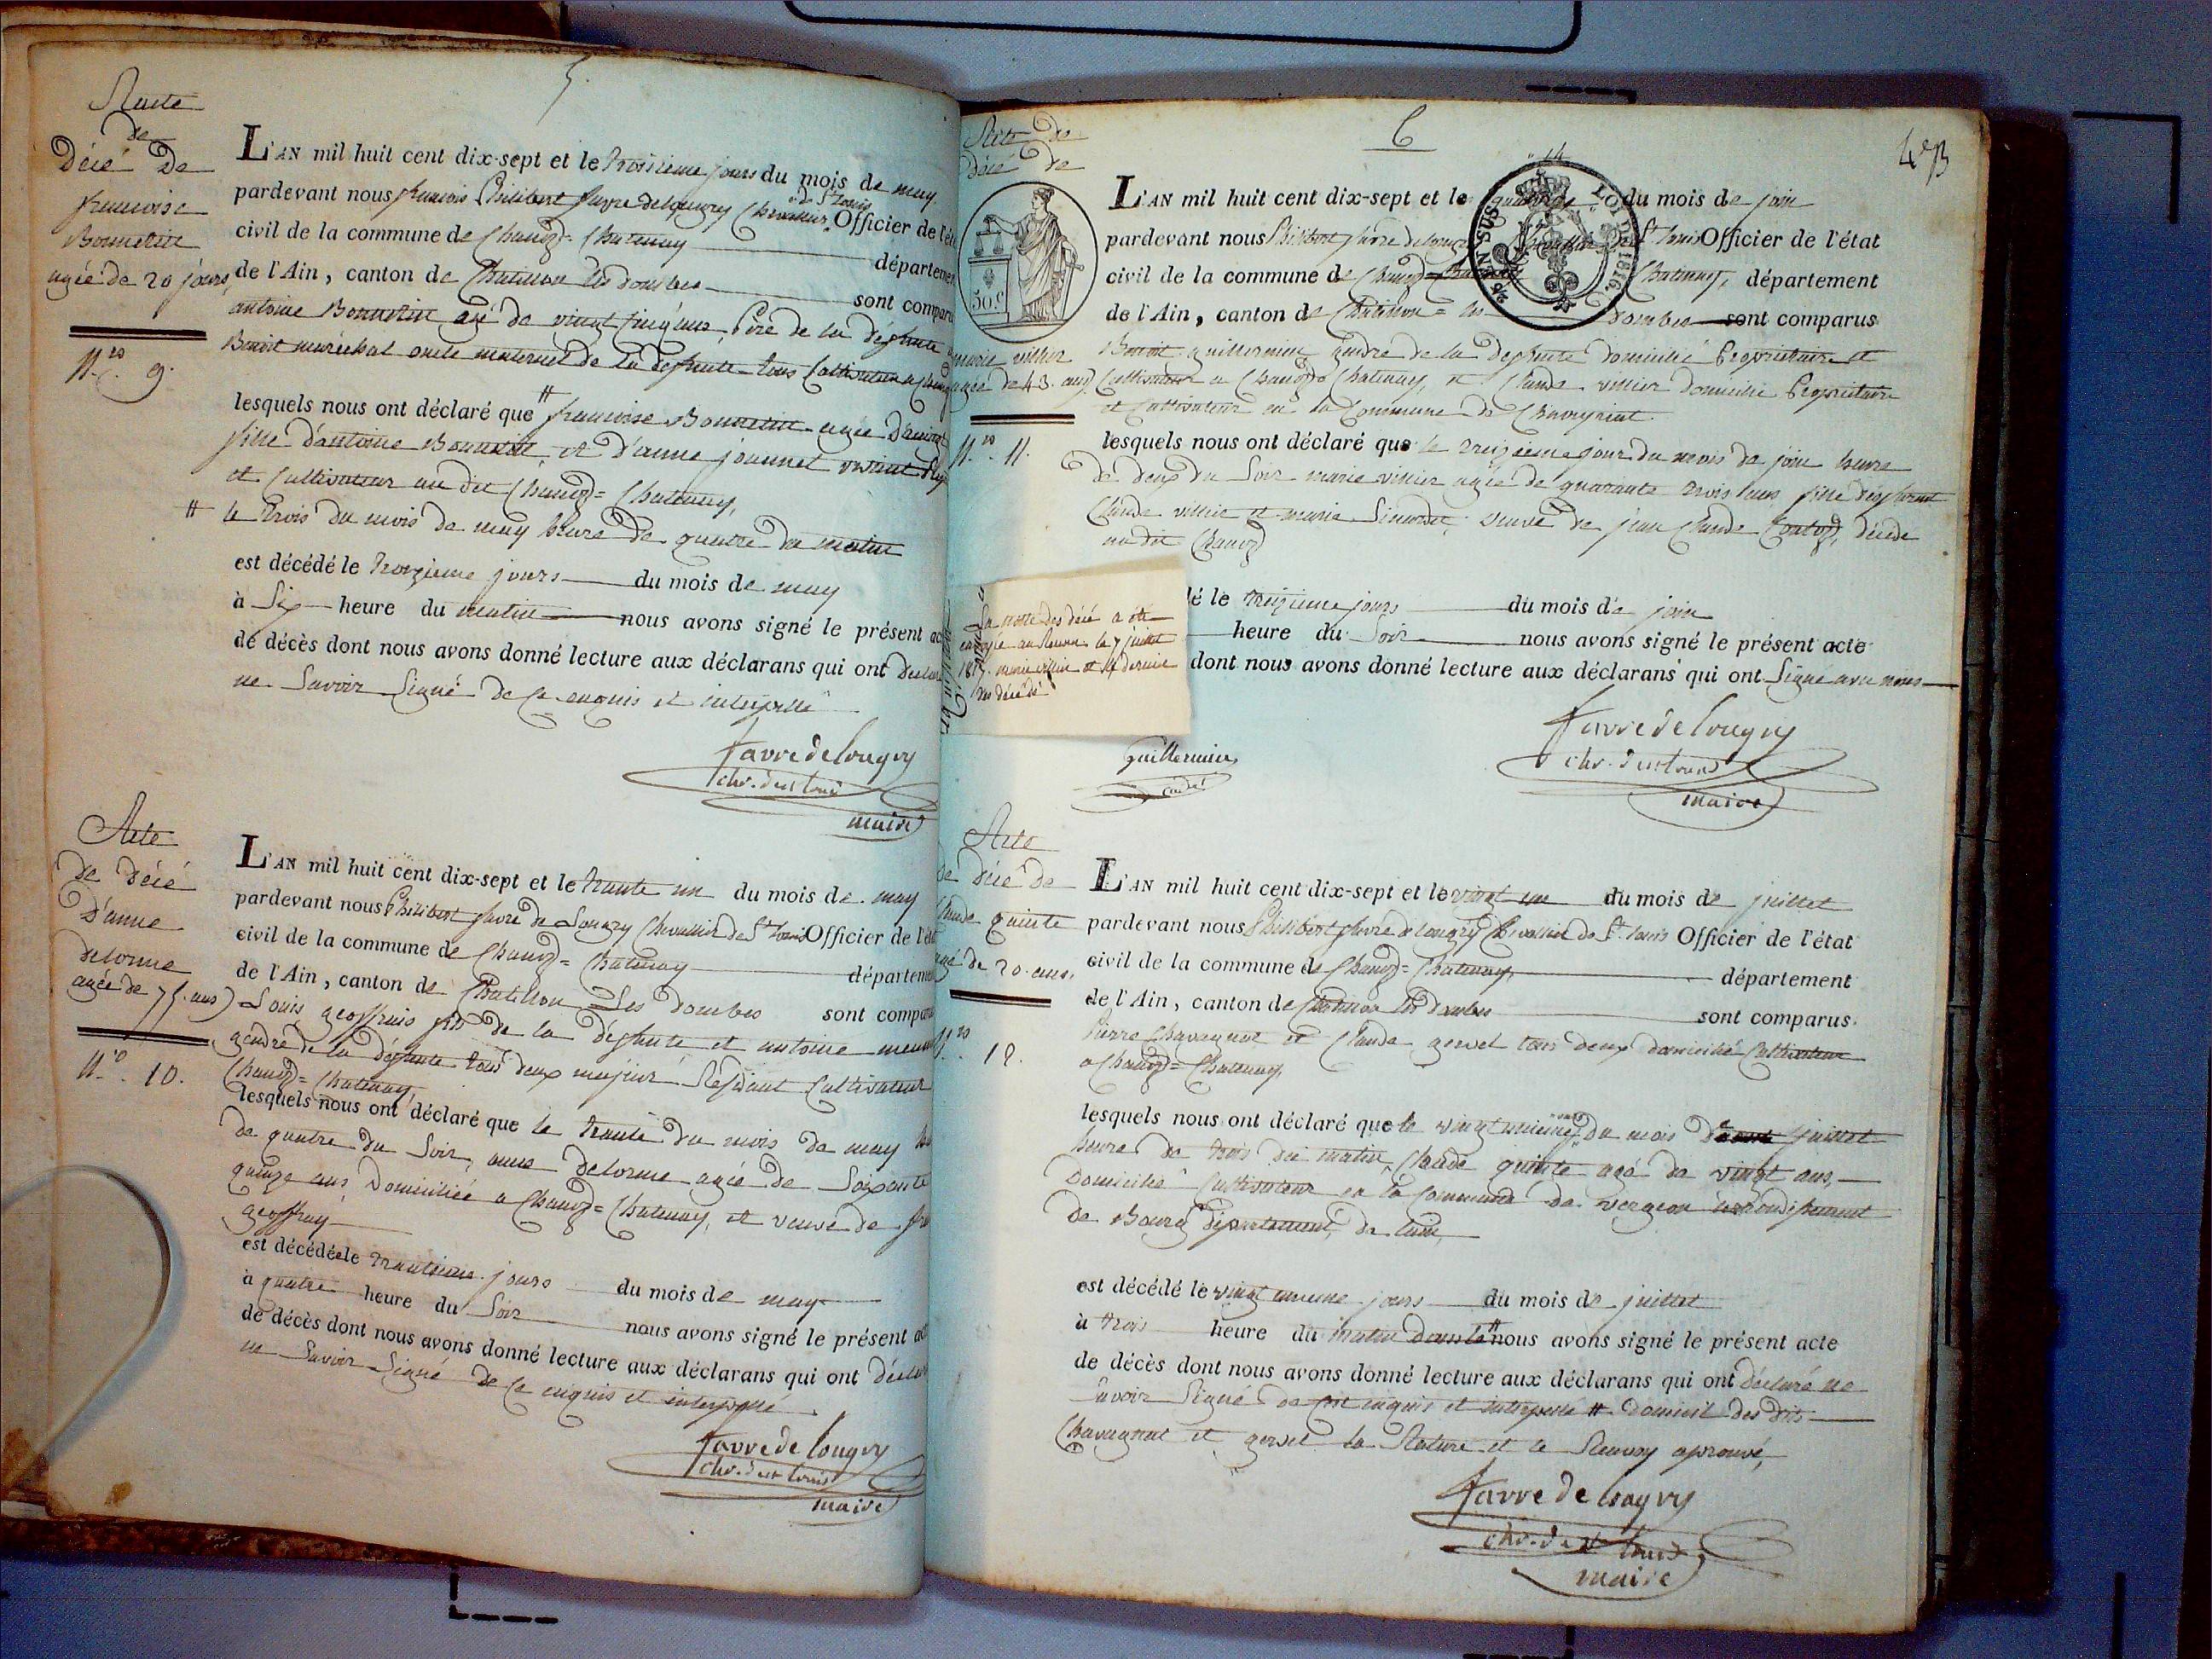 5.
Acte
de
Décé De
francoise
Bonnetin
agée de 20 jours
N.ro 9.
L'AN mil huit cent dix-sept et le troisieme jours du mois de may
pardevant nous francois Philibert favre delongry Chevallier de St Louis Officier de l'éta
civil de la commune de Chanoz=Chatenay département
de l'Ain, canton de Chatillon les dombes sont comparu
antoine Bonnetin agé de vingt cinq ans, Père de la défunte
Benoit maréchal oncle maternel de la defunte tous Cultivateur a
lesquels nous ont déclaré que # francoise Bonnetin agée
fille d'antoine Bonnetin et d'anne jounnet
et Cultivateur au dit Chanoz=Chatenay,
# le trois du mois de may heure de quatre du matin
est décédé le troizieme jours du mois de may
à Six heure du matin nous avons signé le présent ac
de décès dont nous avons donné lecture aux déclarans qui ont declaré
ne Savoir Signé de ce enquis et interpellé
favre de longry
chr. de st louis
maire
Acte
de Décé
D'anne
delorme
agée de 75 ans
N.ro 10.
L'AN mil huit cent dix-sept et le trante un du mois de may
pardevant nous Philibert favre de Longry Chevallier de St Louis Officier de l'éta
civil de la commune de Chanoz=Chatenay département
de l'Ain, canton de Chatillon Les dombes sont comparu
Louis geoffrais fils de la défunte et antoine
gendre de la défunte tous deux majeur Résidant Cultivateur
Chanoz=Chatenay,
lesquels nous ont déclaré que le trante du mois de may
de quatre du Soir, anne delorme agée de Soixante
quinze ans Domiciliée a Chanoz=Chatenay, et veuve de
geoffray
est décédée le trantieme jours du mois de may
à quatre heure du Soir nous avons signé le présent ac
de décès dont nous avons donné lecture aux déclarans qui ont déclaré
ne Savoir Signé de ce enquis et interpelle
favre de longry
chr. de st louis
maire
6
4e
Acte de
décé de
50 c.
marie villier
agée de 43 ans
N.ro 11.
LOI DE 1816.
L'AN mil huit cent dix-sept et le du mois de join
pardevant nous Philibert favre delongry St Louis Officier de l'état
civil de la commune de Chanoz=Chatenay, département
de l'Ain, canton de Chatillon=les dombes sont comparus
Benoit guillermin gendre de la defunte domicilié Proprietaire et
Cultivateur a Chanoz Chatenay, et Claude villier domicilie Proprietaire
et Cultivateur en la Commune de Chaveyriat.
lesquels nous ont déclaré que le treizieme jour du mois de join heure
de deux du Soir marie villier agée de quarante trois ans, fille défunt
Claude villier et marie veuve de jean Claude décédé
au dit Chanoz
La notte des décé a été
envoyée au Receveur le 7 juillet
1817. marie villier et la derniere
des décédé
lé le treizieme jours du mois de join
heure du Soir nous avons signé le présent acte
dont nous avons donné lecture aux déclarans qui ont Signé avec nous
Guillermin
favre de longry
chr. de st louis
maire
Acte
de décé de
Claude quinte
agé de 20 ans,
N.ro 12.
L'AN mil huit cent dix-sept et le vingt un du mois de juillet
pardevant nous Philibert favre de longry Chevallier de St Louis Officier de l'état
civil de la commune de Chanoz=Chatenay, département
de l'Ain, canton de Chatillon les Dombes sont comparus
Pierre Chavagnat et Claude gervet tous deux domicilié Cultivateur
a Chanoz=Chatenay,
lesquels nous ont déclaré que le vingt unieme jours du mois juillet
heure de trois du matin, Claude quinte agé de vingt ans,
Domicilié Cultivateur en la Commune de vergeon arrondissement
de Bourg département de lain,
est décédé le vingt unieme jours du mois de juillet
à trois heure du matin dans le # nous avons signé le présent acte
de décès dont nous avons donné lecture aux déclarans qui ont déclaré ne
Savoir Signé de ce enquis et interpelle # domicil des dits
Chavagnat et gervet la Rature et le Renvoy aprouvé,
favre de longry
chr. de st louis
maire